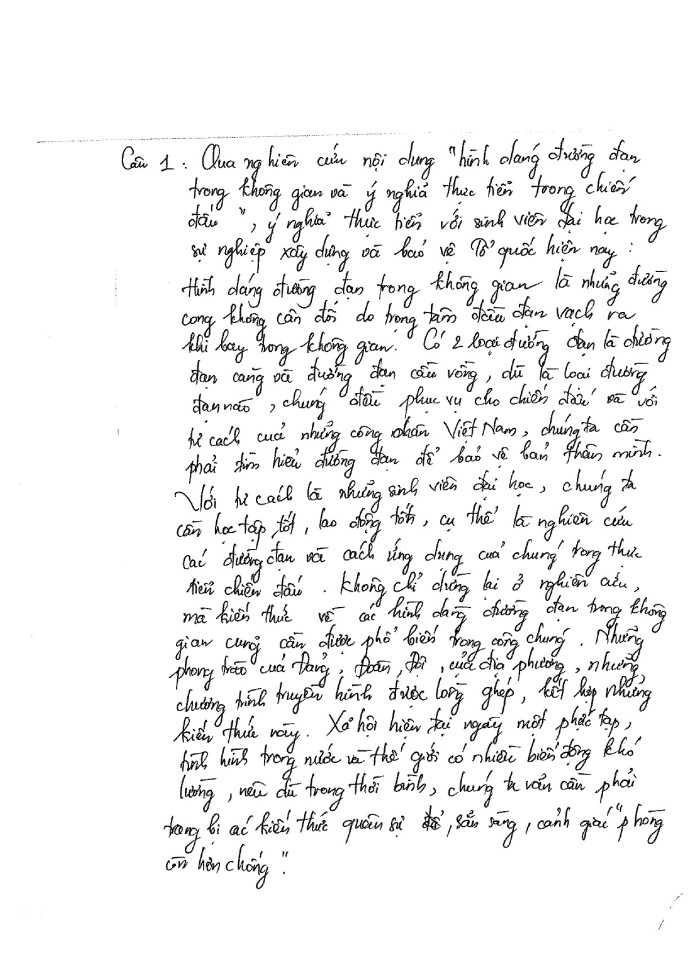 Câu 1 : Qua nghiên cứu nội dung "hình dáng đường đạn
trong không gian và ý nghĩa thực tiễn trong chiến
đấu", ý nghĩa thực tiễn với sinh viên đại học trong
sự nghiệp xây dựng và bảo vệ Tổ quốc hiện nay :
Hình dáng đường đạn trong không gian là những đường
cong không cân đối do trọng tâm đầu đạn vạch ra
khi bay trong không gian. Có 2 loại đường đạn là đường
đạn căng và đường đạn cầu vồng, dù là loại đường
đạn nào, chúng đều phục vụ cho chiến đấu và với
tư cách của những công dân Việt Nam, chúng ta cần
phải tìm hiểu đường đạn để bảo vệ bản thân mình.
Với tư cách là những sinh viên đại học, chúng ta
cần học tập tốt, lao động tốt, cụ thể là nghiên cứu
các đường đạn và cách ứng dụng của chúng trong thực
tiễn chiến đấu. Không chỉ dừng lại ở nghiên cứu,
mà kiến thức về các hình dạng đường đạn trong không
gian cũng cần được phổ biến trong công chúng. Những
phong trào của Đảng, Đoàn, Đội, của địa phương, những
chương trình truyền hình được lồng ghép, kết hợp những
kiến thức này. Xã hội hiện tại ngày một phức tạp,
tình hình trong nước và thế giới có nhiều biến động khó
lường, nếu dù trong thời bình, chúng ta vẫn cần phải
trang bị các kiến thức quân sự để, sẵn sàng, cảnh giác "phòng
còn hơn chống".